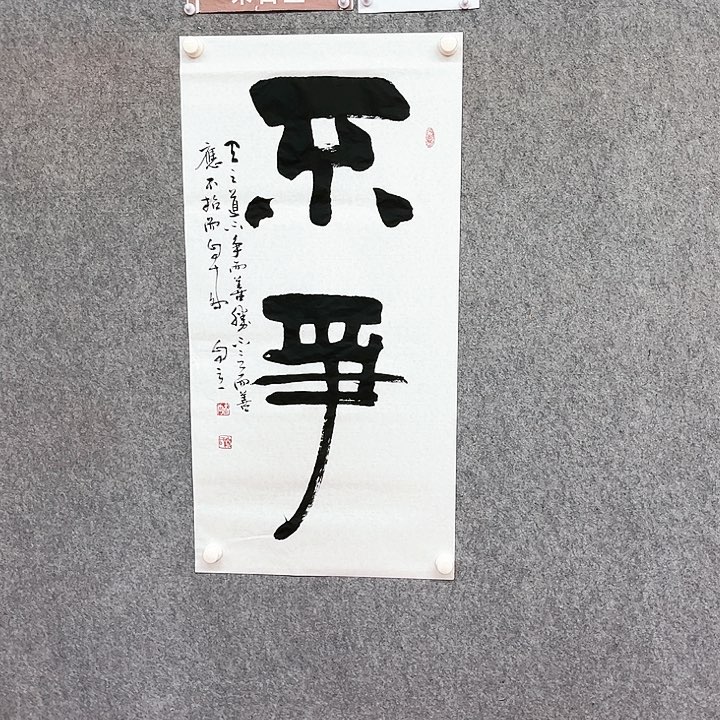 不爭
天之道不争而善勝不言而善
應不招而自